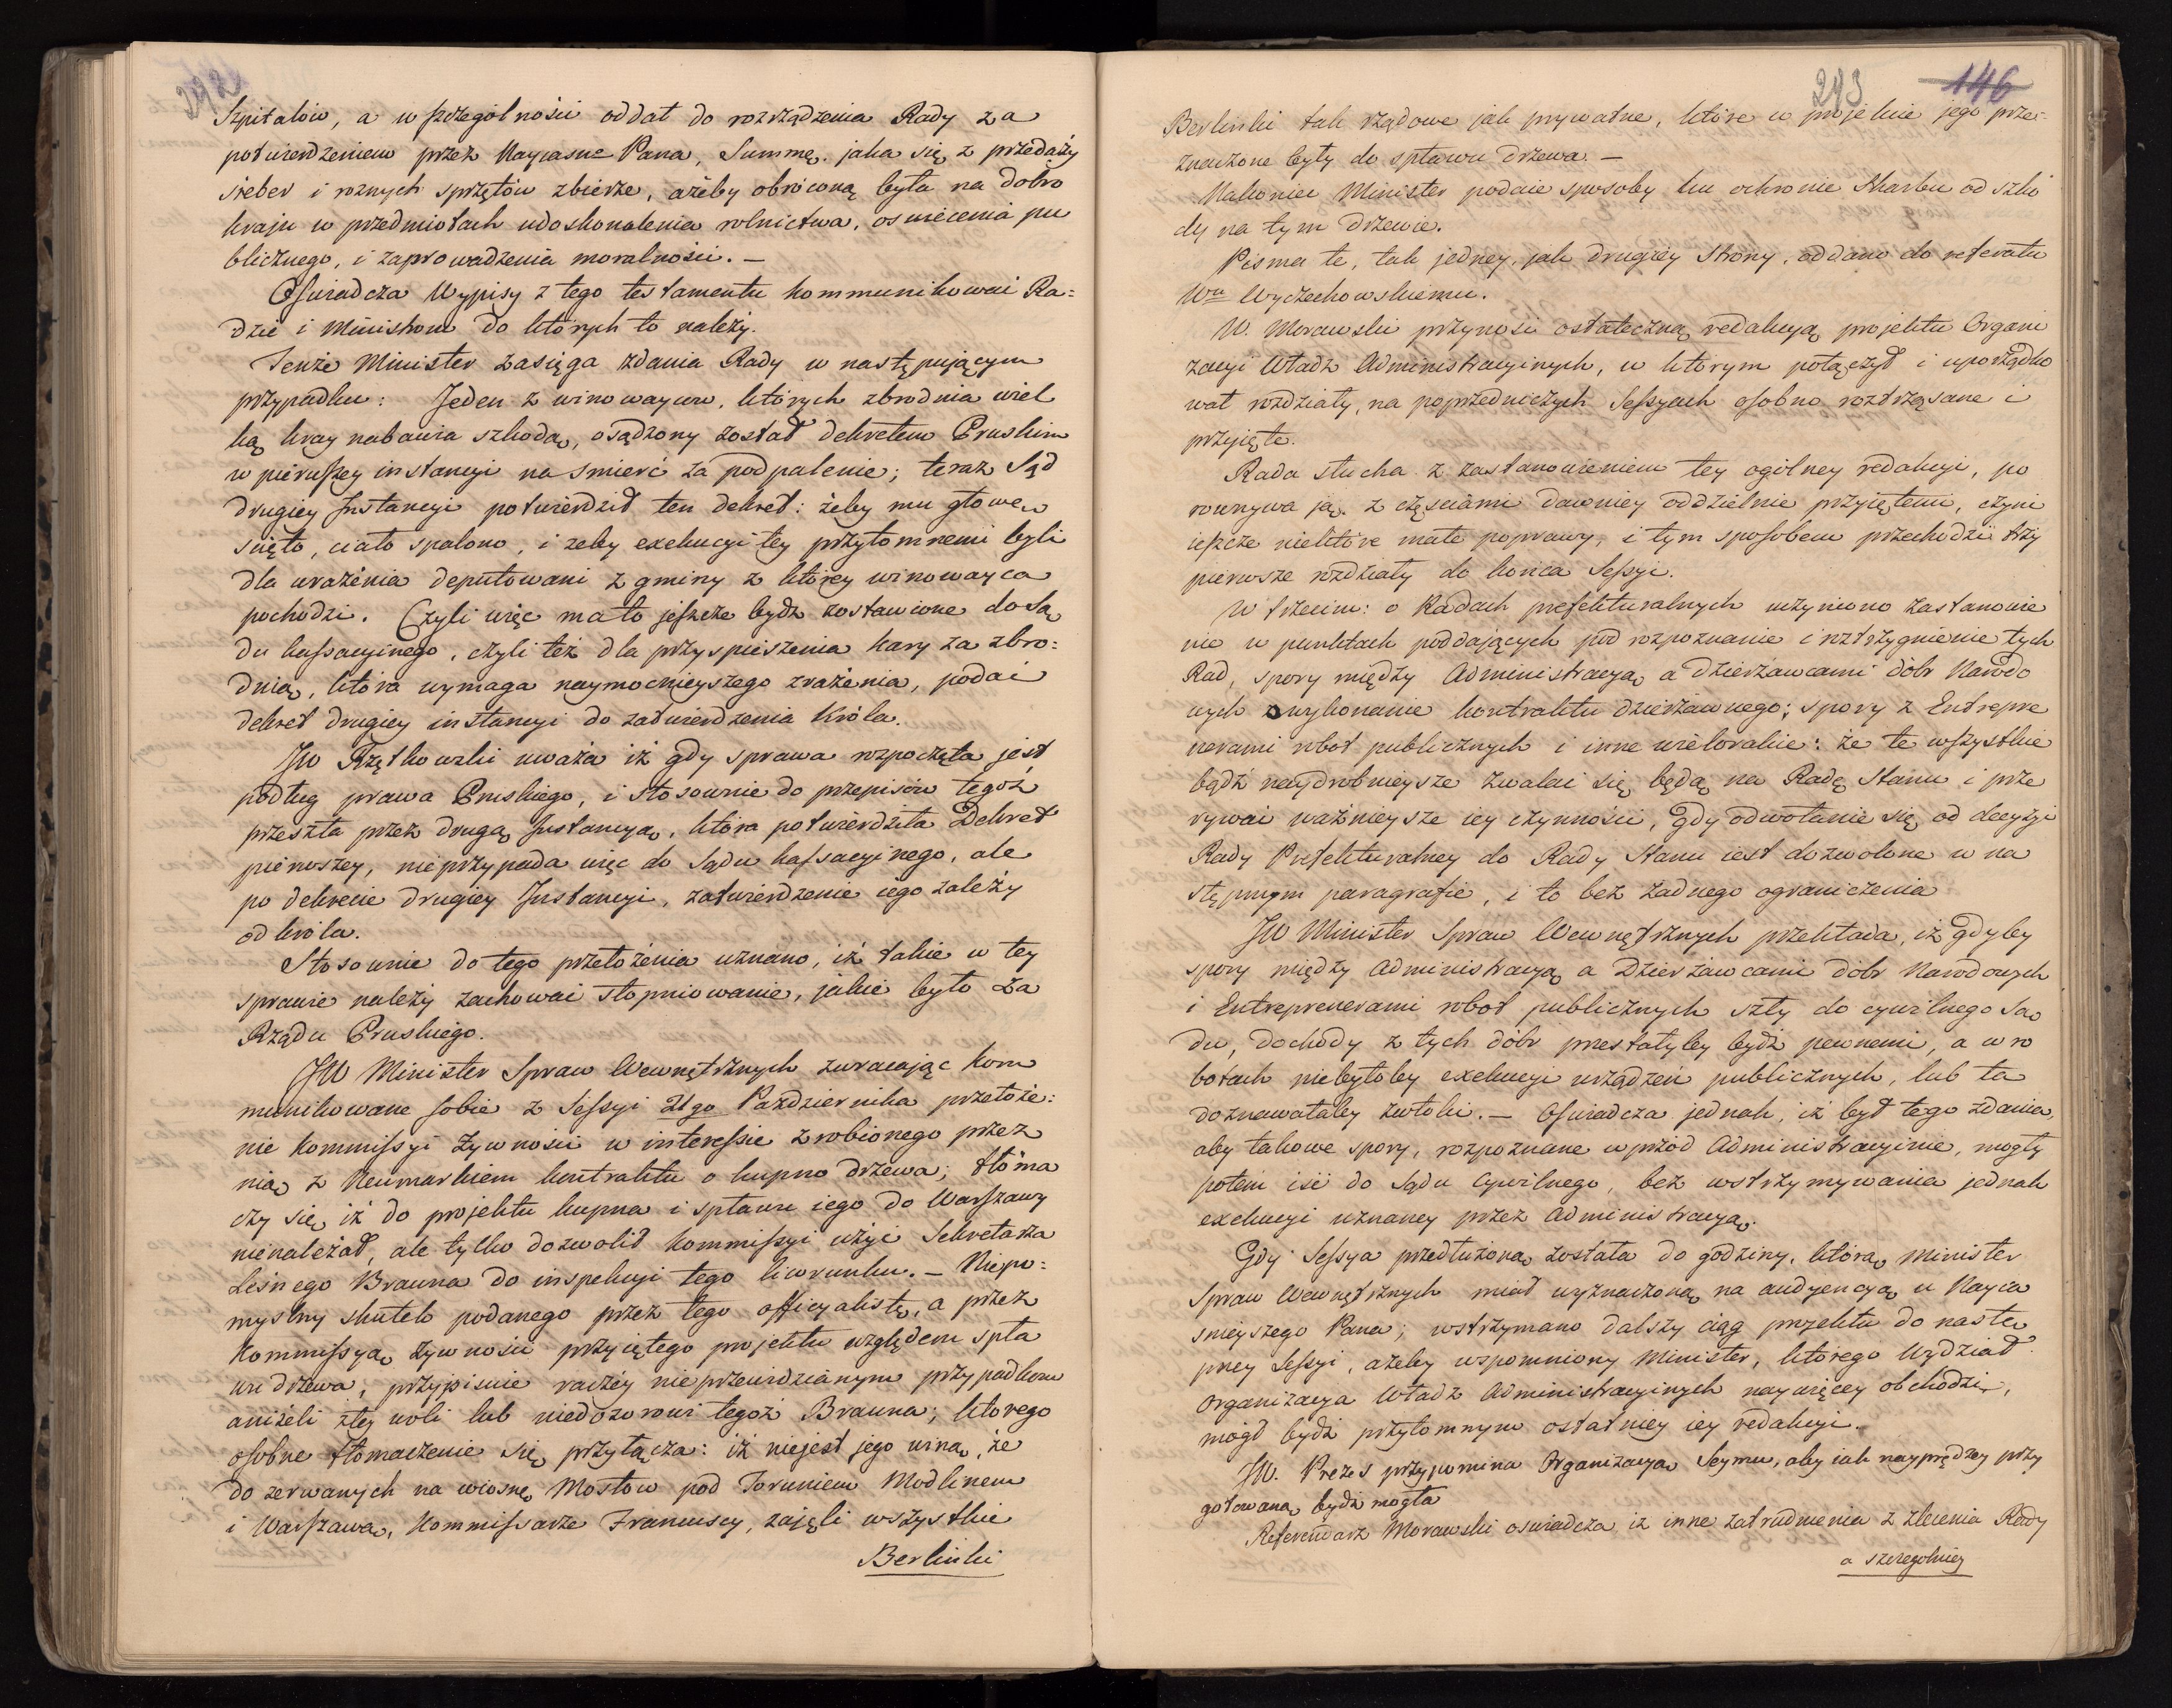 292
Szpitalów, a w szczególności oddał do rozrządzenia Rady za
potwierdzeniem przez Nayiasne Pana, Summę, jaka się z przedaży
sreber i roznych sprzętów zbierze, ażeby obróconą była na dobro
kraju w przedmiotach udoskonalenia rolnictwa, oswiecenia pu
blicznego, i zaprowadzenia moralności. —
Oświadcza Wypisy z tego testamentu kommunikować Ra=
dzie i Ministrom do których to należy.
Tenże Minister zasięga zdania Rady w następującym
przypadku: Jeden z winowaycow, których zbrodnia wiel
ką kray nabawia szkodą, osądzony został dekretem Pruskim
w pierwszey instancyi na smierć za podpalenie; teraz Sąd
drugiey Instancyi potwierdził ten dekret: żeby mu głowę
scięto, ciało spalono, i zeby exekucyi tey przytomnemi byli
dla wrażenia deputowani z gminy z którey winowayca
pochodzi. Czyli więc ma to jeszcze bydz zostawione do Są
du kassacyinego, czyli też dla przyspieszenia kary za zbro=
dnią, która wymaga naymocnieyszego zrażenia, podać
dekret drugiey instancyi do zatwierdzenia Króla.
JW Rzętkowski uważa iż gdy sprawa rozpoczęta jest
podług prawa Pruskiego, i stosownie do przepisów tegoż
przeszła przez drugą Instancyą, która potwierdziła Dekret
pierwszey, nieprzypada więc do Sądu kassacyinego, ale
po dekrecie drugiey Instancyi, zatwierdzenie iego zależy
od króla.
Stosownie do tego przełożenia uznano, iż takie w tey
sprawie należy zachować stopniowanie, jakie było za
Rządu Pruskiego.
JW Minister Spraw Wewnętrznych zwracając kom
munikowane sobie z Sessyi 21go Października przełoże=
nie Kommissyi Żywności w interessie zrobionego przez
nią z Neumarkiem kontraktu o kupno drzewa; tłóma
czy się, iż do projektu kupna i spławu iego do Warszawy
nienależał, ale tylko dozwolił Kommissyi użyć Sekretarza
Leśnego Brauna do inspekcyi tego liwerunku. — Niepo=
myslny skutek podanego przez tego officyalistę, a przez
Kommissyą Żywności przyiętego projektu względem spła
wu drzewa, przypisuie raczey nieprzewidzianym przypadkom
aniżeli złey woli lub niedozorowi tegoż Brauna; którego
osobne tłomaczenie się, przyłącza: iż niejest jego winą, że
do zerwanych na wiosnę Mostow pod Toruniem Modlinem
i Warszawą, Kommissarze Francuscy, zajęli wszystkie
Berlinki
293 146
Berlinki tak rządowe jak prywatne, które w projekcie jego prze=
znaczone były do spławu drzewa. —
Nakoniec Minister podaie sposoby ku ochronie Skarbu od szko
dy na tym drzewie.
Pisma te, tak jedney, jak drugiey Strony, oddano do referatu
Wu Wyczechowskiemu.
W. Morawski przynosi ostateczną redakcyą projektu Organi
zacyi Władz Administracyinych, w którym połączył i uporządko
wał rozdziały, na poprzedniczych Sessyach osobno roztrząsane i
przyięte.
Rada słucha z zastanowieniem tey ogólney redakcyi, po
rownywa ją z częsciami dawniey oddzielnie przyiętemi, czyni
ieszcze niektóre małe poprawy, i tym sposobem przechodzi trzy
pierwsze rozdziały do końca Sessyi.
W trzecim: o Radach prefekturalnych uczyniono zastanowie
nie w punktach poddających pod rozpoznanie i roztrzygnienie tych
Rad, spory między Administracyą a dzierżawcami dóbr Narodo
wych o wykonanie kontraktu dzierżawnego; spory z Entrepre
nerami robot publicznych i inne wielorakie: że te wszystkie
bądź naydrobnieysze zwalać się będą na Radę Stanu i prze
rywać ważnieysze iey czynności, gdy odwołanie się od decyzyi
Rady Prefekturalney do Rady Stanu iest dozwolone w na
stępnym paragrafie, i to bez żadnego ograniczenia
JW Minister Spraw Wewnętrznych przekłada, iż gdyby
spory między Administracyą a Dzierżawcami dóbr Narodowych
i Entreprenerami robot publicznych szły do cywilnego Są
du, dochody z tych dóbr przestałyby bydź pewnemi, a w ro
botach niebyłoby exekucyi urządzeń publicznych, lub ta
doznawałaby zwłoki. — Oswiadcza jednak, iż był tego zdania,
aby takowe spory, rozpoznane wprzód Administracyinie, mogły
potem iść do Sądu Cywilnego, bez wstrzymywania jednak
exekucyi uznaney przez Administracyą.
Gdy Sessya przedłużona została do godziny, którą Minister
Spraw Wewnętrznych miał wyznaczoną na audyencyą u Nayia
snieyszego Pana; wstrzymano dalszy ciąg projektu do nastę
pney Sessyi, ażeby wspomniony Minister, którego Wydział
Organizacya Władz Administracyinych naywięcey obchodzi,
mógł bydź przytomnym ostatniey iey redakcyi.
JW. Prezes przypomina Organizacyą Seymu, aby iak nayprędzey przy
gotowaną bydź mogła
Referendarz Morawski oswiadcza iż inne zatrudnienia z zlecenia Rady
a szczególniey